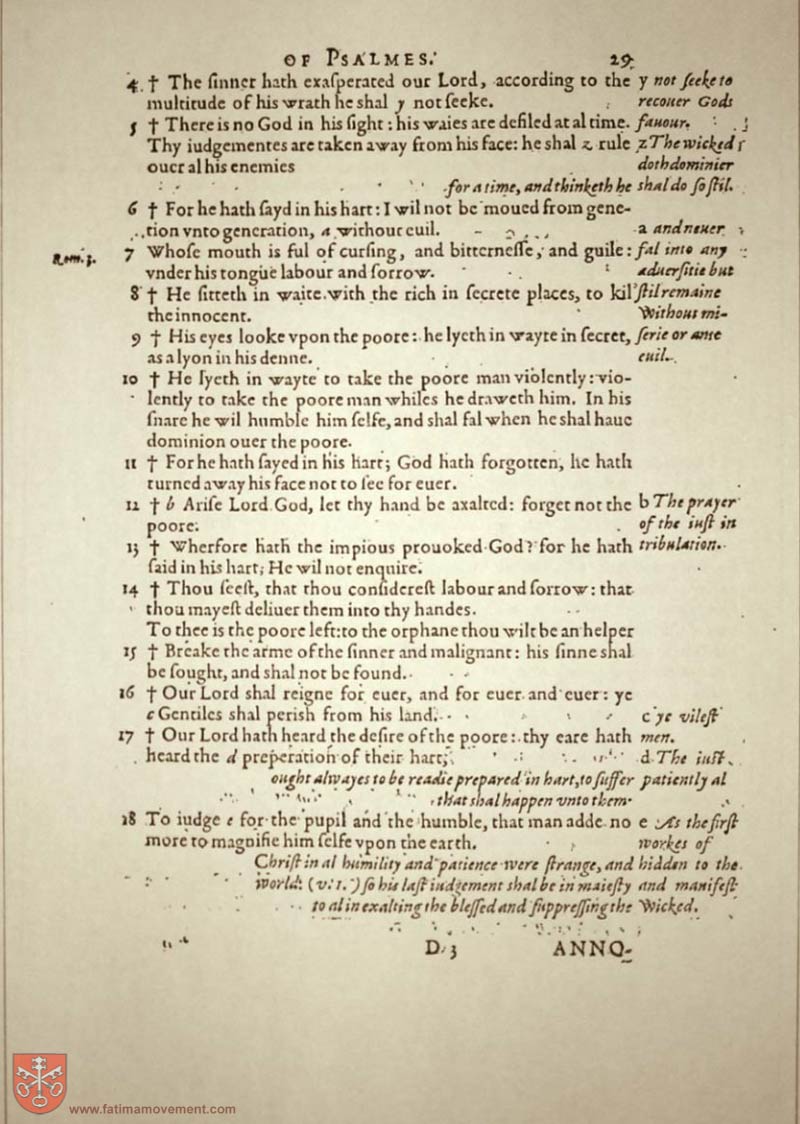 OF PSALMES. 29.
4. † The ſinner hath exaſperated our Lord, according to the y not ſeeke to
multitude of his wrath he shal y not ſeeke. recouer Gods
5 † There is no God in his ſight : his waies are defiled at al time. fauour.
Thy iudgementes are taken away from his face: he shal z rule z The wicked
ouer al his enemies doth dominier
for a time, and thinketh he shal do ſo ſtil.
6 † For he hath ſayd in his hart : I wil not be moued from gene-
tion vnto generation, a without euil. a and neuer
Rom. 3. 7 Whoſe mouth is ful of curſing, and bitterneſſe, and guile : fal into any
vnder his tongue labour and ſorrow. aduerſitie but
8 † He ſitteth in waite with the rich in ſecrete places, to kil ſtil remaine
the innocent. Without mi-
9 † His eyes looke vpon the poore : he lyeth in wayte in ſecret, ſerie or anie
as a lyon in his denne. euil.
10 † He lyeth in wayte to take the poore man violently : vio-
lently to take the poore man whiles he draweth him. In his
ſnare he wil humble him ſelfe, and shal fal when he shal haue
dominion ouer the poore.
11 † For he hath ſayed in his hart; God hath forgotten, he hath
turned away his face not to ſee for euer.
12 † b Ariſe Lord God, let thy hand be axalted: forget not the b The prayer
poore. of the iuſt in
13 † Wherfore hath the impious prouoked God? for he hath tribulation.
ſaid in his hart; He wil not enquire.
14 † Thou ſeeſt, that thou conſidereſt labour and ſorrow : that
thou mayeſt deliuer them into thy handes.
To thee is the poore left: to the orphane thou wilt be an helper
15 † Breake the arme of the ſinner and malignant : his ſinne shal
be ſought, and shal not be found.
16 † Our Lord shal reigne for euer, and for euer and euer : ye
c Gentiles shal perish from his land. c ye vileſt
17 † Our Lord hath heard the deſire of the poore : thy eare hath men.
heard the d preperation of their hart; d The iuſt
ought alwayes to be readie prepared in hart, to ſuffer patiently al
that shal happen vnto them.
18 To iudge e for the pupil and the humble, that man adde no e As the firſt
more to magnifie him ſelfe vpon the earth. workes of
Chriſt in al humility and patience were ſtrange, and hidden to the
world: (v. 1.) ſo his laſt iudgement shal be in maieſty and manifeſt
to al in exalting the bleſſed and ſuppreſſing the Wicked.
D 3 ANNO-
www.fatimamovement.com